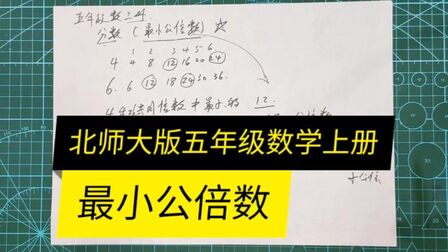 五年级数上册
分数(最小公倍数)☆
1 2 3 4 5 6
4 4 8 12 16 20 24
6. 6 12 18 24 30 36.
12.
北师大版五年级数学上册
最小公倍数